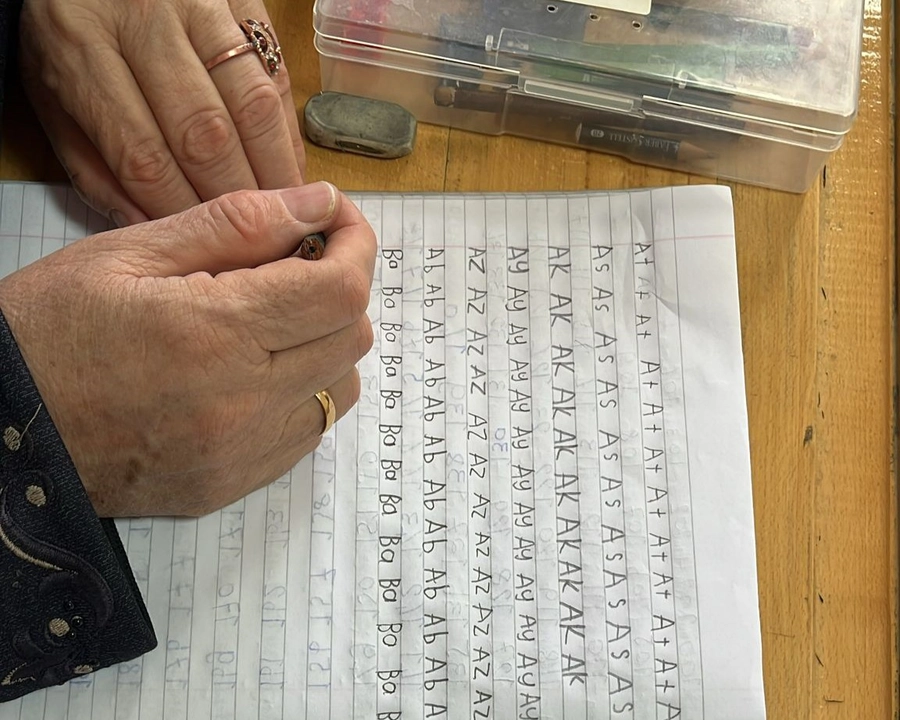 At At At At At At At At At At At A
As As As As As As As As As As
AK AK AK AK AK AK AK AK AK AK
Ay Ay Ay Ay Ay Ay Ay Ay Ay Ay Ay Ay Ay
Az Az Az Az Az Az Az Az Az Az Az Az
Ab Ab Ab Ab Ab Ab Ab Ab Ab Ab Ab A
Ba Ba Ba Ba Ba Ba Ba Ba Ba Ba Ba Ba B